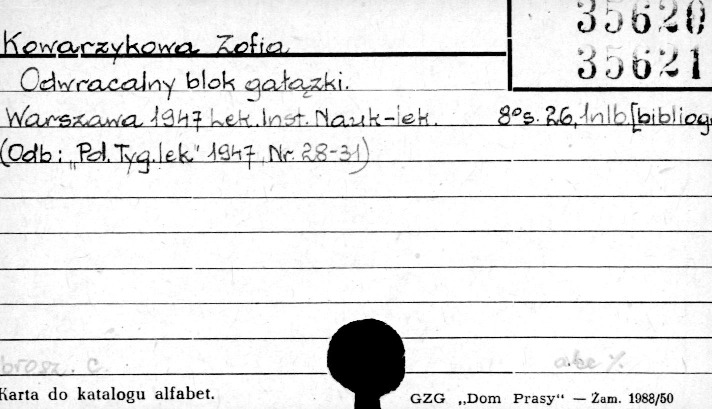 35620
35621
Kowarzykowa Zofia
Odwracalny blok gałązki.
Warszawa 1947 Lek. Inst. Nauk-lek. 8° s. 26, 1nlb. [bibliog
(Odb: „Pol. Tyg. lek" 1947, Nr. 28-31)
brosz. c.
Karta do katalogu alfabet.
GZG „Dom Prasy“ — Zam. 1988/50